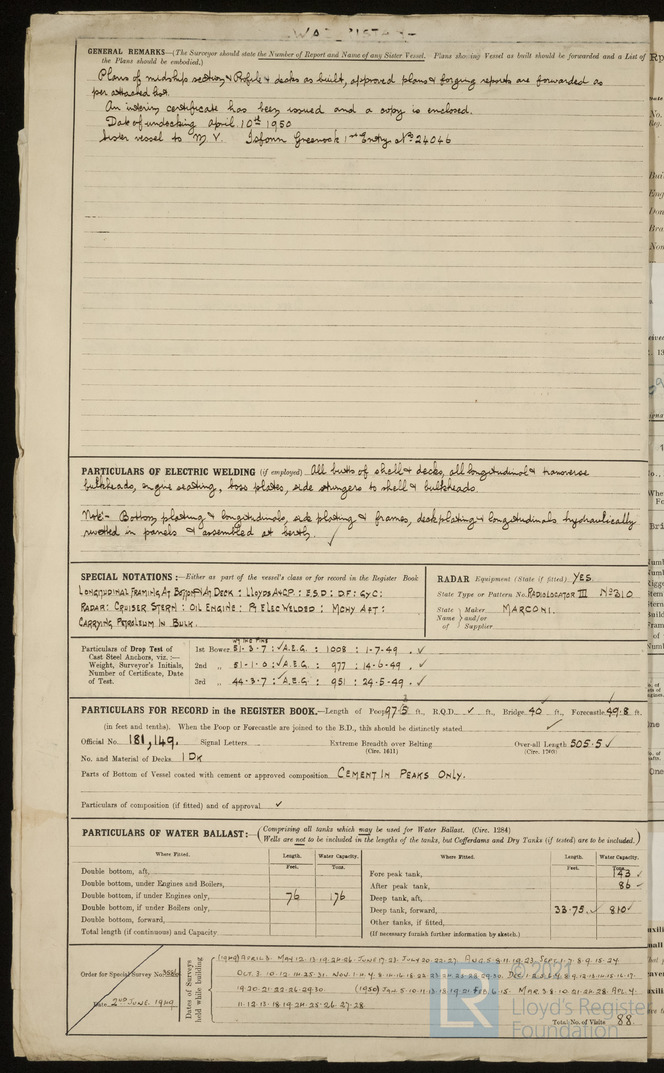 GENERAL REMARKS—(The Surveyor should state the Number of Report and Name of any Sister Vessel. Plans showing Vessel as built should be forwarded and a List of
the Plans should be embodied.)
Plans of midship section & Profile & decks as built, approved plans & forging reports are forwarded as
per attached list.
An interim certificate has been issued and a copy is enclosed.
Date of undocking April 10th 1950
Sister vessel to M.V. Isfonn Greenock 1st Entry No 24046
PARTICULARS OF ELECTRIC WELDING (if employed) All butts of shell & decks, all longitudinal & transverse
bulkheads, engine seating, boss plates, side stringers to shell & bulkheads.
Note:- Bottom plating & longitudinals, side plating & frames, deck plating & longitudinals hydraulically
riveted in panels & assembled at berth. ✓
SPECIAL NOTATIONS:—Either as part of the vessel's class or for record in the Register Book
LONGITUDINAL FRAMING AT BOTTOM AT DECK : LLOYDS A&CP : E.S.D : D.F : GYC :
RADAR : CRUISER STERN : OIL ENGINE : Pt ELEC WELDED : MCHY AFT :
CARRYING PETROLEUM IN BULK.
RADAR Equipment (State if fitted) YES.
State Type or Pattern No. RADIOLOCATOR III No 310
State Name Maker and/or of Supplier MARCONI.
Particulars of Drop Test of Cast Steel Anchors, viz.:—Weight, Surveyor's Initials, Number of Certificate, Date of Test.
1st Bower 51-3-7 : ✓ A.E.G. : 1008 : 1-7-49. ✓
2nd „ 51-1-0 : ✓ A.E.G. : 977 : 14-6-49. ✓
3rd „ 44-3-7 : ✓ A.E.G. : 951 : 24-5-49. ✓
PARTICULARS FOR RECORD in the REGISTER BOOK.—Length of Poop 97.5 ft., R.Q.D. ✓ ft., Bridge 40 ft., Forecastle 49.8 ft.
(in feet and tenths). When the Poop or Forecastle are joined to the B.D., this should be distinctly stated ✓
Official No. 181,149. Signal Letters Extreme Breadth over Belting (Circ. 1611) Over-all Length 505.5 ✓ (Circ. 1703)
No. and Material of Decks 1 DK
Parts of Bottom of Vessel coated with cement or approved composition CEMENT IN PEAKS ONLY.
Particulars of composition (if fitted) and of approval ✓
PARTICULARS OF WATER BALLAST:—(Comprising all tanks which may be used for Water Ballast. (Circ. 1284)
Wells are not to be included in the lengths of the tanks, but Cofferdams and Dry Tanks (if tested) are to be included.)
Where Fitted. Length. Feet. Water Capacity. Tons.
Double bottom, aft,
Double bottom, under Engines and Boilers,
Double bottom, if under Engines only, 76 176
Double bottom, if under Boilers only,
Double bottom, forward,
Total length (if continuous) and Capacity
Where Fitted. Length. Feet. Water Capacity. Tons.
Fore peak tank, 143 ✓
After peak tank, 86 ✓
Deep tank, aft,
Deep tank, forward, 33.75 ✓ 810 ✓
Other tanks, if fitted,
(If necessary furnish further information by sketch.)
Order for Special Survey No.
Date 2nd JUNE. 1949
Dates of Surveys held while building
(1949) APRIL 3. MAY 12.13.19.24.26. JUNE 17.23. JULY 20.22.27. AUG. 5.8.11.19.23. SEPT. 1.7.8.9.15.24.
OCT. 3.10.12.14.25.31. NOV. 1.
19.20.21.22.26.29.30. (1950) JAN 5.10.11.13.18.19. FEB. 6.15. MAR 3.8.10.21.24.28. APL 4.
11.12.13.18.19.24.25.26.27.28
Total No. of Visits 88.
© 2021
LR
Lloyd's Register
Foundation